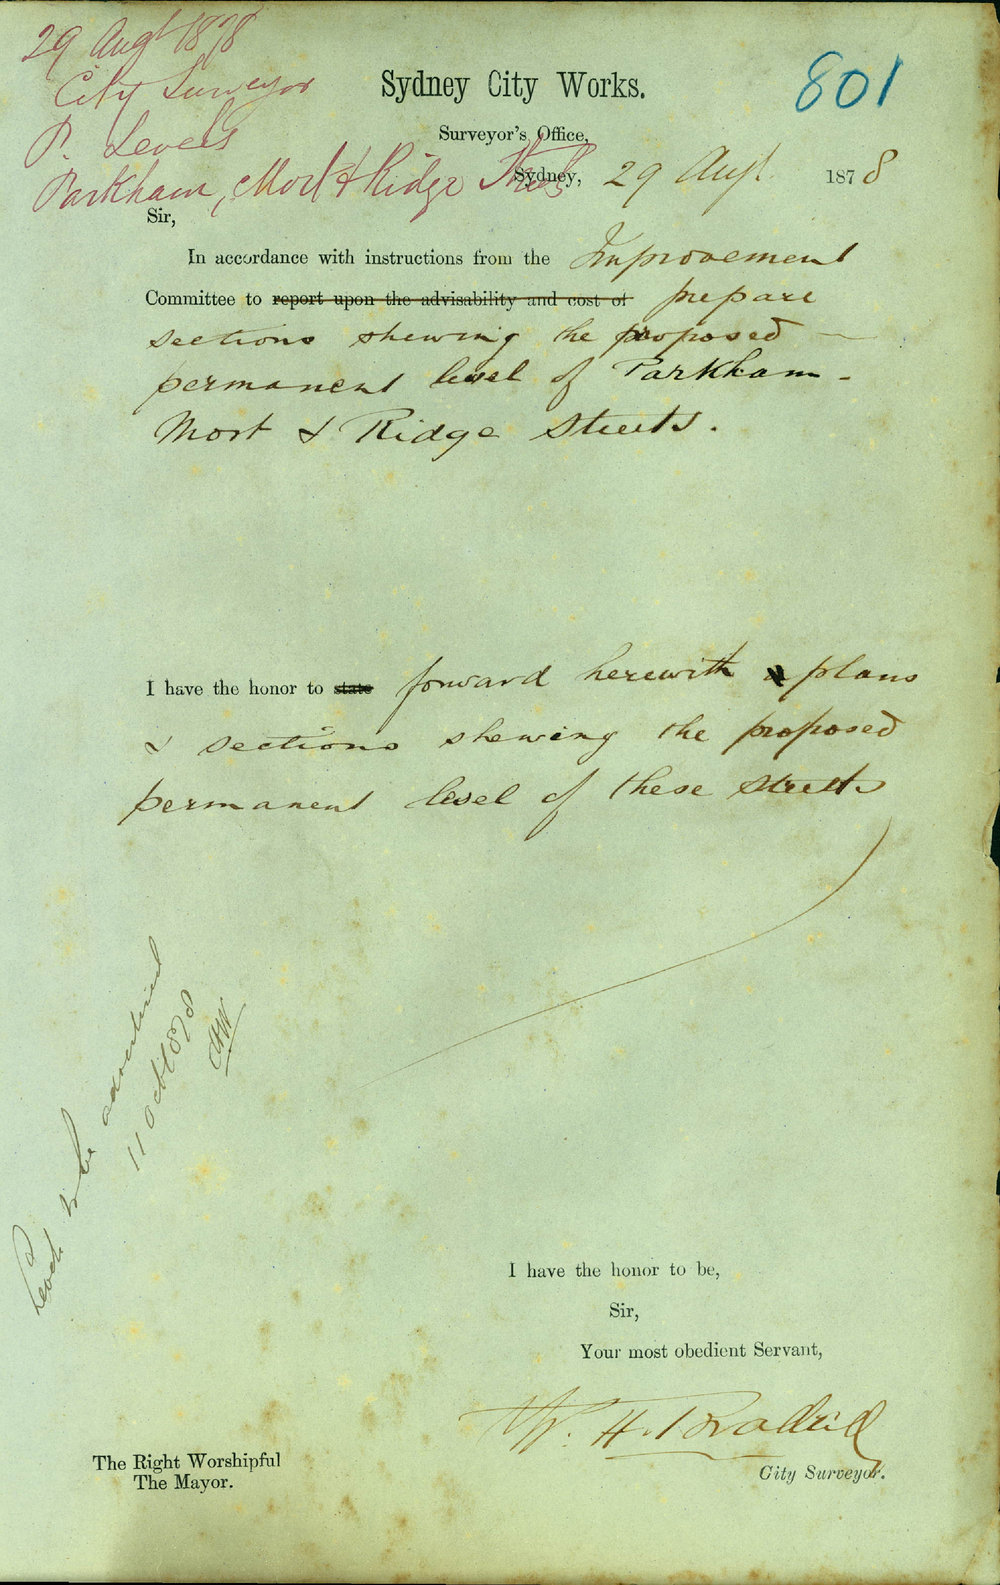 29 Augt 1878
City Surveyor
P. Levels
Parkham, Mort & Ridge Streets
801
Sydney City Works.
Surveyor's Office,
Sydney, 29 Augt. 1878
Sir,
In accordance with instructions from the Improvement
Committee to report upon the advisability and cost of prepare
sections shewing the proposed
permanent level of Parkham -
Mort & Ridge Streets.
I have the honor to state forward herewith plans
& sections shewing the proposed
permanent level of these streets
Levels to be advertised
11 Oct 1878
I have the honor to be,
Sir,
Your most obedient Servant,
W. H.
City Surveyor.
The Right Worshipful
The Mayor.